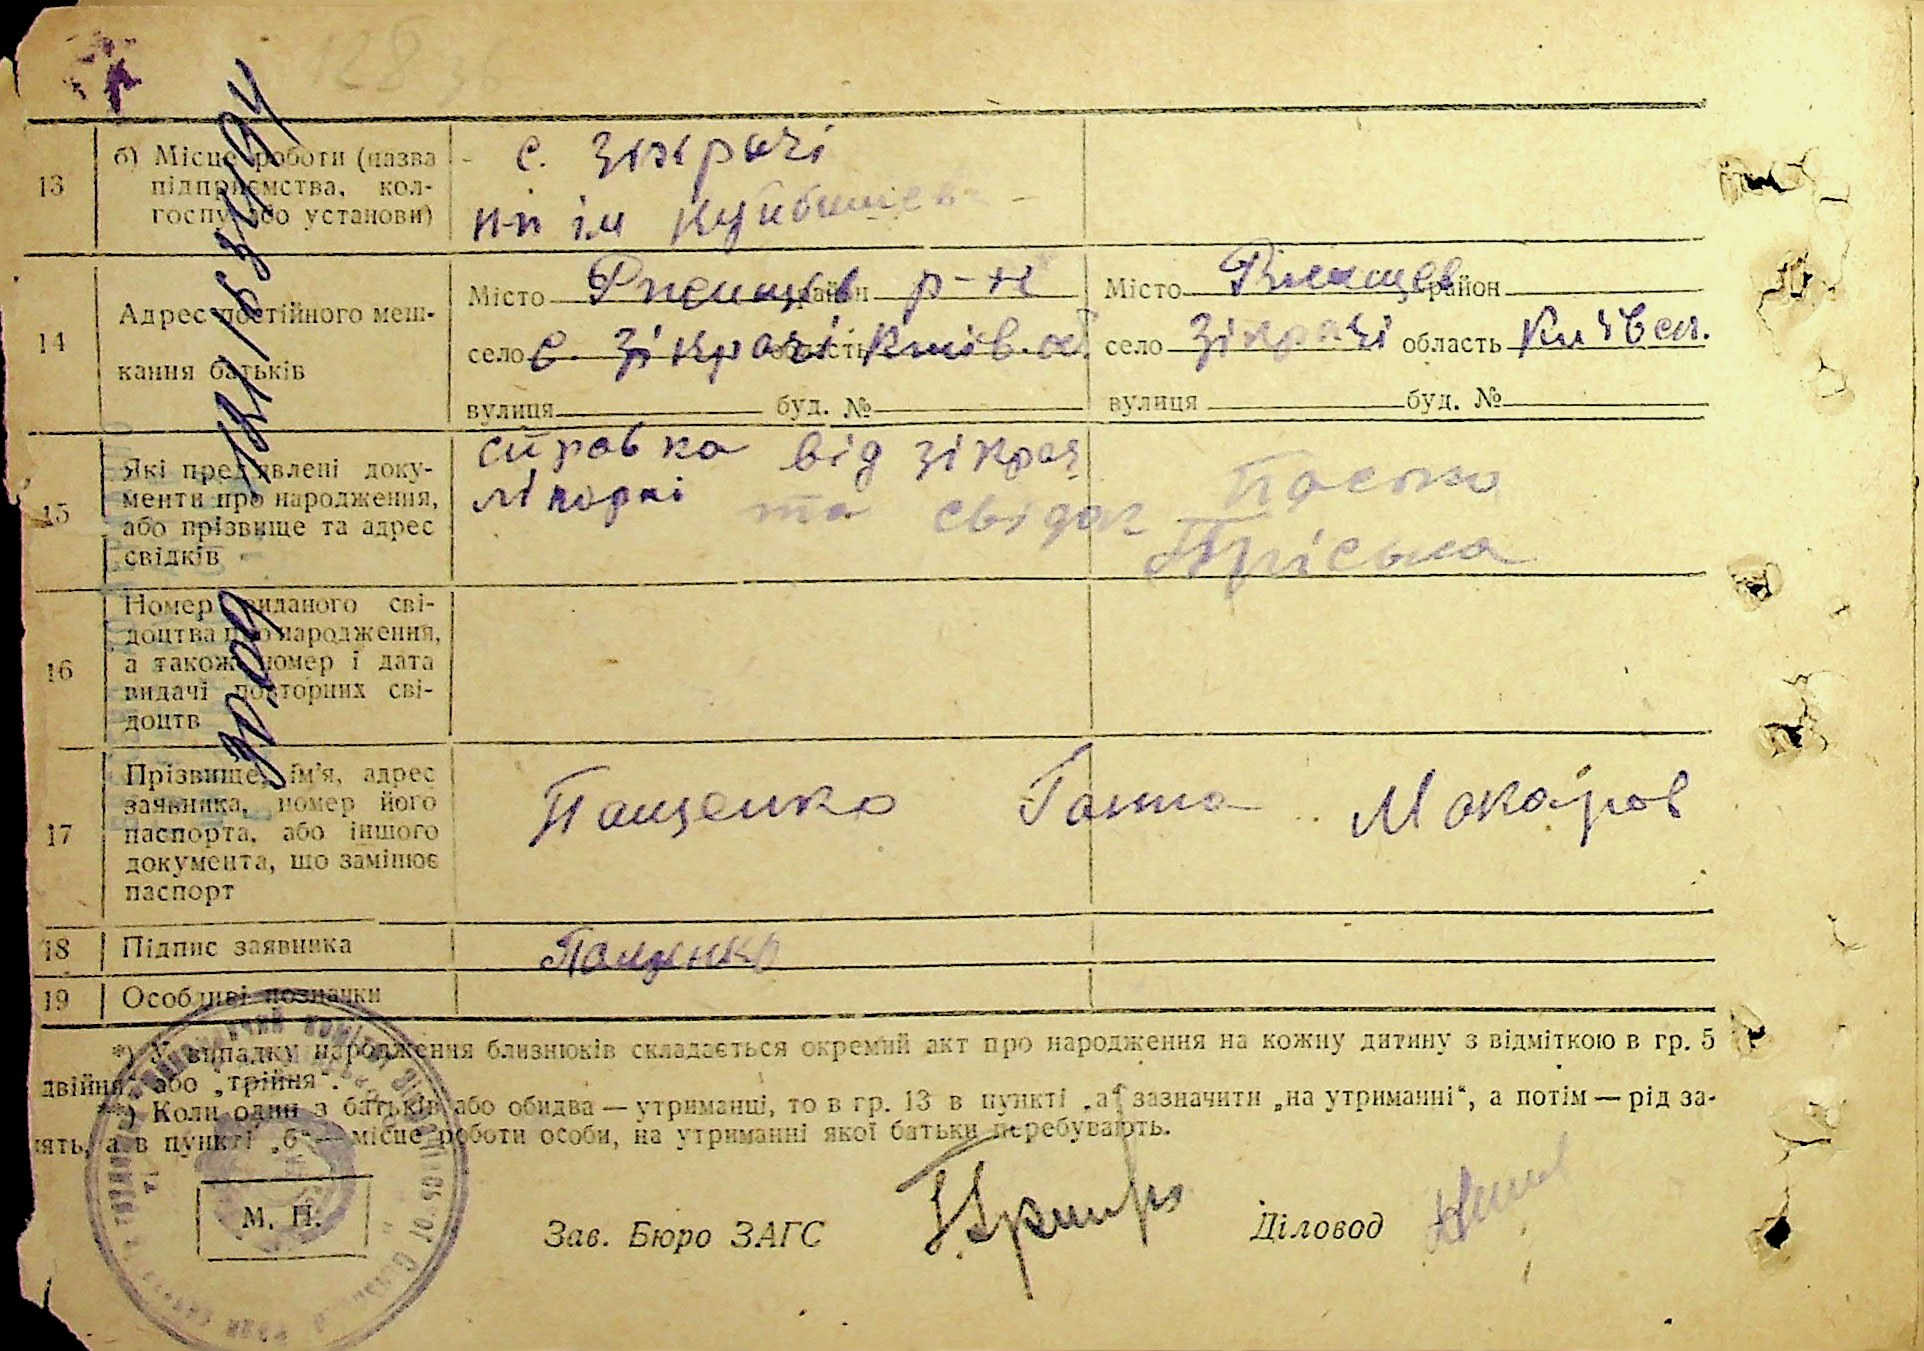 128 зв
13
б) Місце роботи (назва
підприємства, кол-
госпу або установи)
- с. Зікрачі
к-п ім Куйбишева -
14
Адрес постійного меш-
кання батьків
Місто Ржищів район р-н
село с. Зікрачі область Київ. об
вулиця буд. №
Місто Ржищев район
село Зікрачі область Київск.
вулиця буд. №
15
Які пред'явлені доку-
менти про народження,
або прізвище та адрес
свідків
справка від Зікрач
лікарні та свідок Пасько
Пріська
16
Номер виданого сві-
доцтва про народження,
а також номер і дата
видачі повторних сві-
доцтв
17
Прізвище, ім'я, адрес
заявника, номер його
паспорта, або іншого
документа, що замінює
паспорт
Пащенко Ганна Макаров
18
Підпис заявника
Пащенко
19
Особливі позначки
*) У випадку народження близнюків складається окремий акт про народження на кожну дитину з відміткою в гр. 5
двійня" або „трійня".
**) Коли один з батьків або обидва — утриманці, то в гр. 13 в пункті „а" зазначити „на утриманні", а потім — рід за-
нять, а в пункті „б" — місце роботи особи, на утриманні якої батьки перебувають.
М. П.
Зав. Бюро ЗАГС
Діловод